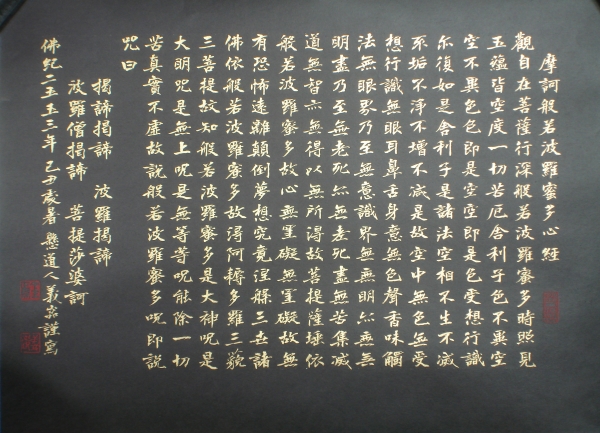 摩訶般若波羅蜜多心經
觀自在菩薩行深般若波羅蜜多時照見
五蘊皆空度一切苦厄舍利子色不異空
空不異色色即是空空即是色受想行識
亦復如是舍利子是諸法空相不生不滅
不垢不淨不增不減是故空中無色無受
想行識無眼耳鼻舌身意無色聲香味觸
法無眼界乃至無意識界無無明亦無無
明盡乃至無老死亦無老死盡無苦集滅
道無智亦無得以無所得故菩提薩埵依
般若波羅蜜多故心無罣礙無罣礙故無
有恐怖遠離顛倒夢想究竟涅槃三世諸
佛依般若波羅蜜多故得阿耨多羅三藐
三菩提故知般若波羅蜜多是大神呪是
大明呪是無上呪是無等等呪能除一切
苦真實不虛故說般若波羅蜜多呪即說
咒曰
揭諦揭諦 波羅揭諦
波羅僧揭諦 菩提莎婆訶
佛紀二五五三年 己丑處暑 道人義 謹寫